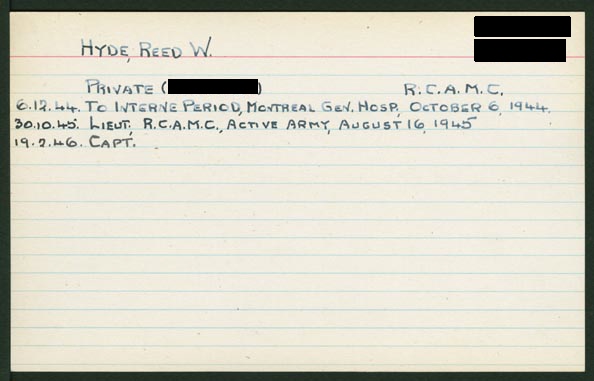 HYDE, REED W.
PRIVATE ( ) R.C.A.M.C.
6.12.44. TO INTERNE PERIOD, MONTREAL GEN. HOSP., OCTOBER 6, 1944.
30.10.45. LIEUT., R.C.A.M.C., ACTIVE ARMY, AUGUST 16, 1945
19.2.46. CAPT.